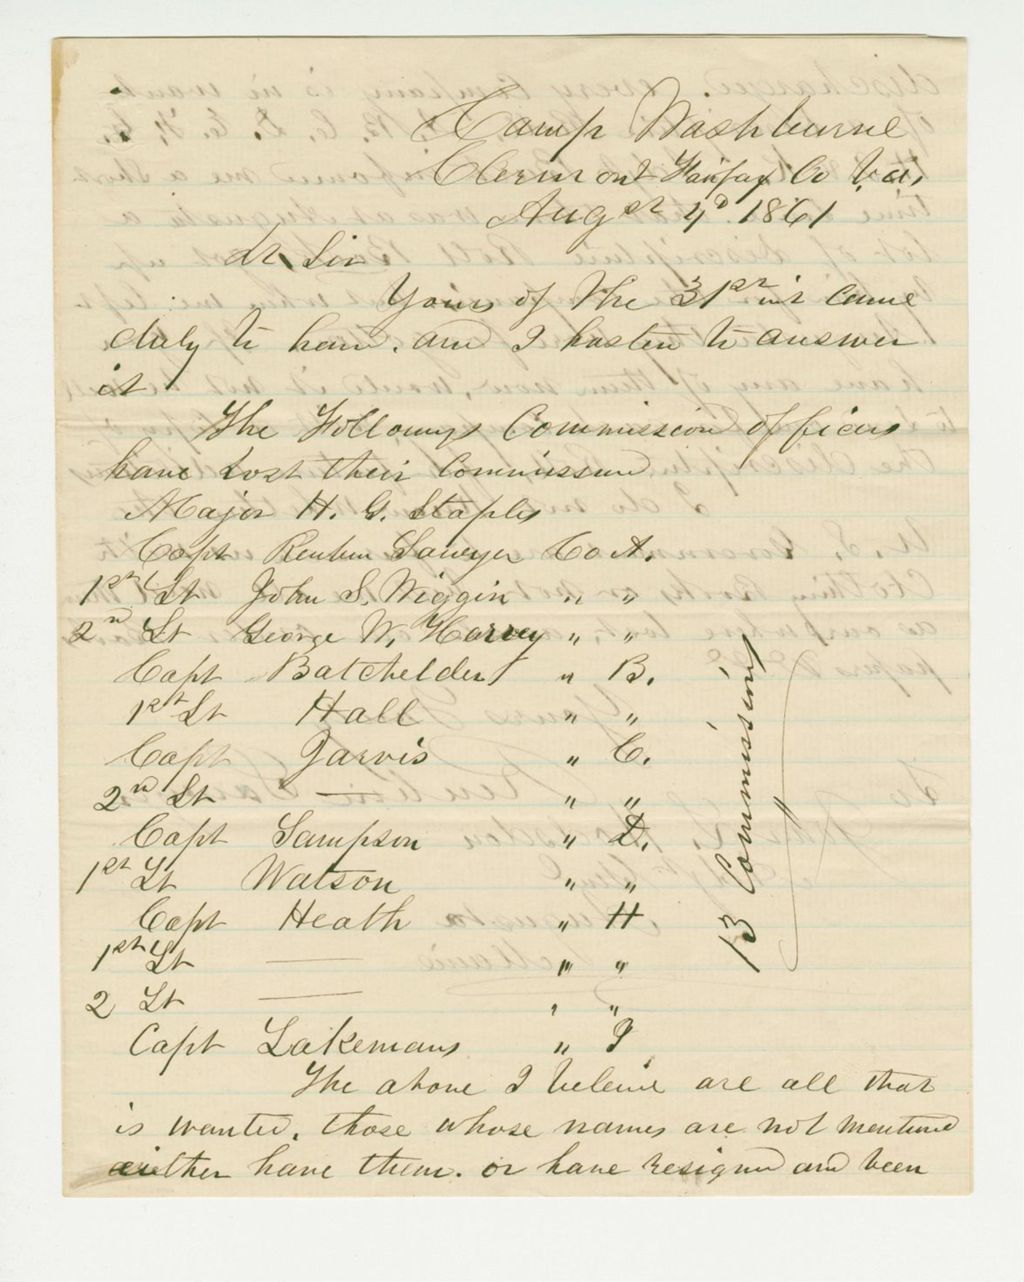 Camp Washburne
Clermont Fairfax Co Va,
Augst 4d 1861
Dr Sir
Yours of the 31st inst came
duly to hand. and I hasten to answer
it
The Following Commission officers
have Lost their Commission
Major H. G. Staples
Capt Reuben Sawyer Co A.
1st Lt John S. Wiggin " "
2nd Lt George W, Harvey " "
Capt Batchelder " B.
1st Lt Hall " "
Capt Jarvis " C.
2nd Lt — " "
Capt Sampson " D.
1st Lt Watson " "
Capt Heath " H
1st Lt — " "
2 Lt — " "
Capt Lakemans " I
13 Commissions
The above I beleive are all that
is wanted, those whose names are not mentioned
either have them. or have resigned and been